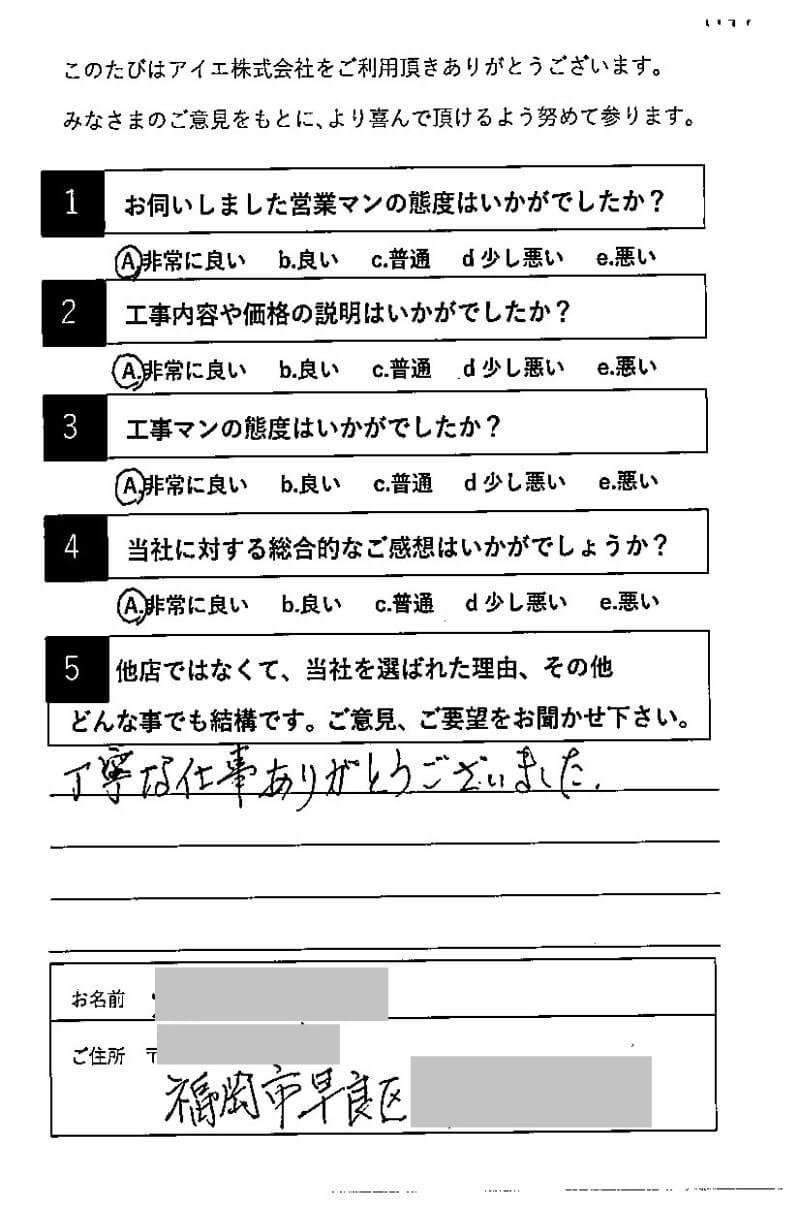 このたびはアイエ株式会社をご利用頂きありがとうございます。
みなさまのご意見をもとに、より喜んで頂けるよう努めて参ります。
1 お伺いしました営業マンの態度はいかがでしたか？
A.非常に良い b.良い c.普通 d 少し悪い e.悪い
2 工事内容や価格の説明はいかがでしたか？
A.非常に良い b.良い c.普通 d 少し悪い e.悪い
3 工事マンの態度はいかがでしたか？
A.非常に良い b.良い c.普通 d 少し悪い e.悪い
4 当社に対する総合的なご感想はいかがでしょうか？
A.非常に良い b.良い c.普通 d 少し悪い e.悪い
5 他店ではなくて、当社を選ばれた理由、その他
どんな事でも結構です。ご意見、ご要望をお聞かせ下さい。
丁寧な仕事ありがとうございました.
お名前
ご住所 〒
福岡市早良区